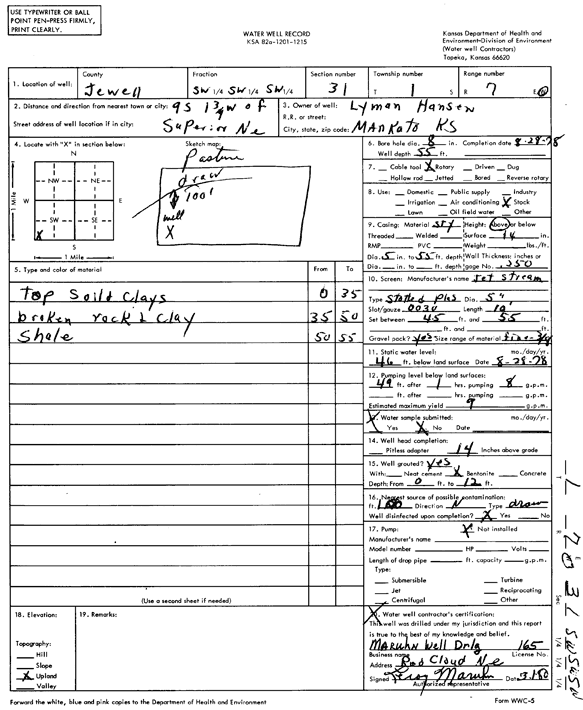 USE TYPEWRITER OR BALL
POINT PEN-PRESS FIRMLY,
PRINT CLEARLY.
WATER WELL RECORD
KSA 82a-1201-1215
Kansas Department of Health and
Environment-Division of Environment
(Water well Contractors)
Topeka, Kansas 66620
1. Location of well: County Jewell Fraction SW 1/4 SW 1/4 SW 1/4 Section number 31 Township number T 1 S Range number R 7 E/W
2. Distance and direction from nearest town or city: 9S 1 3/4 W of
Street address of well location if in city: Superior Ne
3. Owner of well: Lyman Hansen
R.R. or street:
City, state, zip code: Mankato KS
4. Locate with "X" in section below:
N
NW NE
W E
SW SE
X
S
1 Mile
1 Mile
Sketch map:
Pasture
draw
100'
well
X
6. Bore hole dia. 8 in. Completion date 8-28-78
Well depth 55 ft.
7. Cable tool X Rotary Driven Dug
Hollow rod Jetted Bored Reverse rotary
8. Use: Domestic Public supply Industry
Irrigation Air conditioning X Stock
Lawn Oil field water Other
9. Casing: Material Sty Height: Above or below
Threaded Welded Surface 14 in.
RMP PVC Weight lbs./ft.
Dia. 5 in. to 55 ft. depth Wall Thickness: inches or
Dia. in. to ft. depth gage No. .250
5. Type and color of material From To
Top Soil & Clays 0 35
broken rock & Clay 35 50
Shale 50 55
10. Screen: Manufacturer's name Jet Stream
Type Slotted Plas Dia. 5"
Slot/gauze 0030 Length 10
Set between 45 ft. and 55 ft.
ft. and ft.
Gravel pack? Yes Size range of material fine-3/4
11. Static water level: mo./day/yr.
46 ft. below land surface Date 8-28-78
12. Pumping level below land surfaces:
49 ft. after 1 hrs. pumping 8 g.p.m.
ft. after hrs. pumping g.p.m.
Estimated maximum yield 9 g.p.m.
13. Water sample submitted: mo./day/yr.
Yes X No Date
14. Well head completion:
Pitless adapter 14 Inches above grade
15. Well grouted? Yes
With: Neat cement X Bentonite Concrete
Depth: From 0 ft. to 12 ft.
16. Nearest source of possible contamination:
ft. 100 Direction N Type draw
Well disinfected upon completion? X Yes No
17. Pump: X Not installed
Manufacturer's name
Model number HP Volts
Length of drop pipe ft. capacity g.p.m.
Type:
Submersible Turbine
Jet Reciprocating
Centrifugal Other
(Use a second sheet if needed)
18. Elevation:
Topography:
Hill
Slope
X Upland
Valley
19. Remarks:
20. Water well contractor's certification:
This well was drilled under my jurisdiction and this report
is true to the best of my knowledge and belief.
Maruhn Well Drlg 165
Business name License No.
Address Red Cloud Ne
Signed Troy Maruhn Date 3-1-80
Authorized representative
Forward the white, blue and pink copies to the Department of Health and Environment
Form WWC-5
T R E Sec 31 SW SW SW
1/4 1/4 1/4